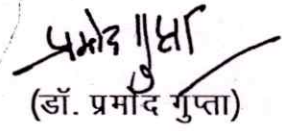 प्रमोद गुप्ता
(डॉ. प्रमोद गुप्ता)